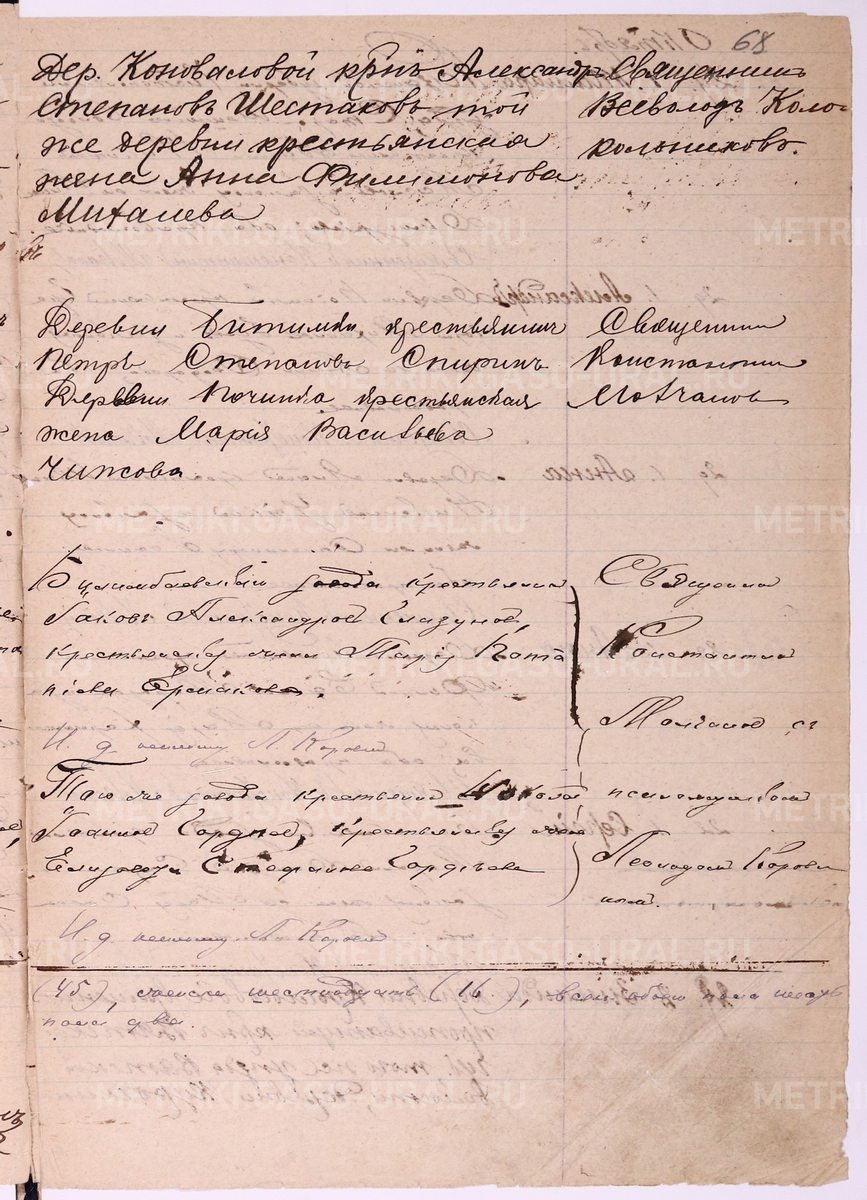 68
Дер. Коноваловой крнъ Александръ
Степановъ Шестаковъ той
же деревни крестьянская
жена Анна Филимонова
Михалева
Священникъ
Всеволодъ Коло-
кольниковъ.
Деревни Битимки крестьянинъ
Петръ Степановъ Спиринъ
Деревни Починка крестьянская
жена Марія Васильева
Чижова
Священникъ
Константинъ
Молчановъ
Билимбаевскаго завода крестьянинъ
Іаковъ Александровъ Глазуновъ,
крестьянская жена Марія
Ермакова.
И. д. псаломщ. Л. Коровинъ
Того же завода крестьянинъ Никола
Іоанновъ Гордѣевъ, крестьянская жена
Елизавета Стефанова Гордѣева
И. д. псаломщ. Л. Коровинъ
Священникъ
Константинъ
Молчановъ съ
псаломщикомъ
Леонидомъ Корови-
нымъ.
(45), женска шестнадцать (16), всего обоего пола шесть
пола два.
METRIKI.GASO-URAL.RU